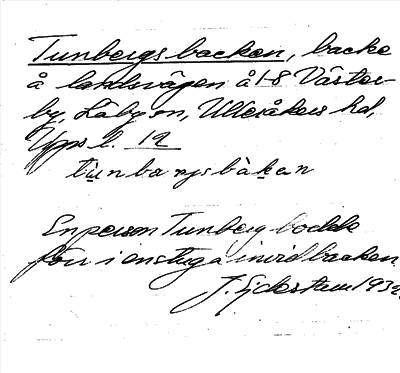 Tunbergsbacken, backe
å landsvägen å 1-8 Väster-
by, Läby sn, Ulleråkers hd,
Upps. l. 12
tu̇nbærgsbàkan
En person Tunberg bodde
förr i en stuga invid backen.
J. Ejdestam 1932.